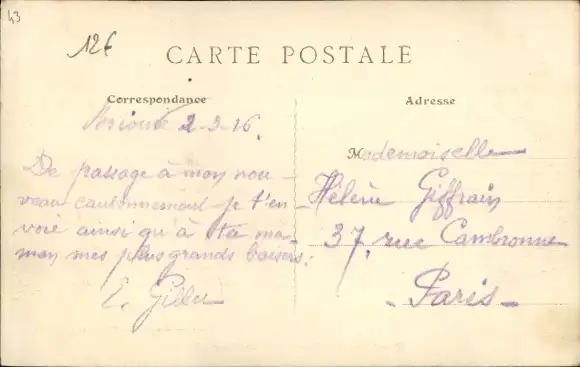 43
12€
CARTE POSTALE
Correspondance
Adresse
Brioude 2-3-16.
De passage à mon nou-
veau cantonnement je t'en
voie ainsi qu'à ta ma-
man mes plus grands baisers.
E. Gillet
Mademoiselle
Hélène Giffrain
37, rue Cambronne
- Paris -